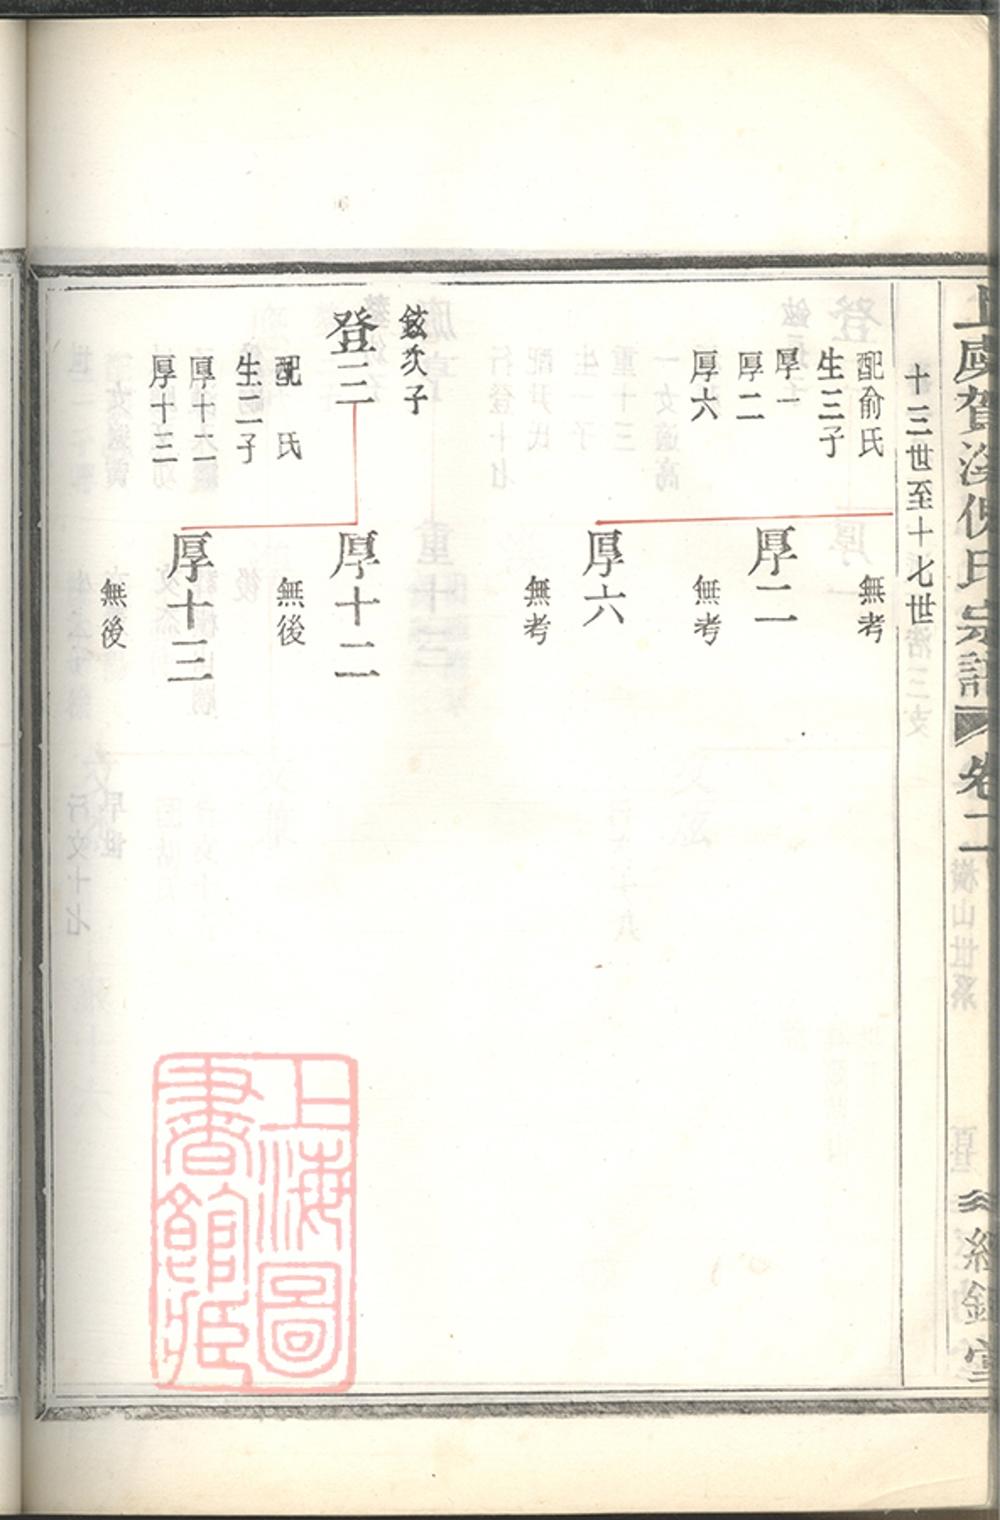 上虞賀溪倪氏宗譜 卷二
經鉏堂
十三世至十七世
配俞氏
生三子
厚一
厚二
厚六
無考
厚二
無考
厚六
無考
鉉次子
登三
配 氏
生二子
厚十二
厚十三
厚十二
無後
厚十三
無後
上海圖
書館藏